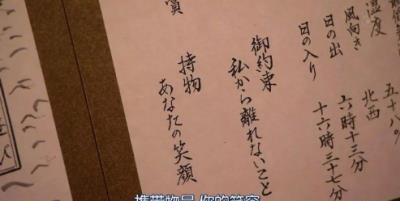 温度 五十八。
風向き 北西
日の出 六時十三分
日の入り 十六時三十七分
御約束
私から離れないこと
持物
あなたの笑顔
攜帶物品 你的笑容